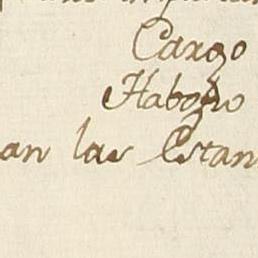 Cargo
Habono
an las Estan